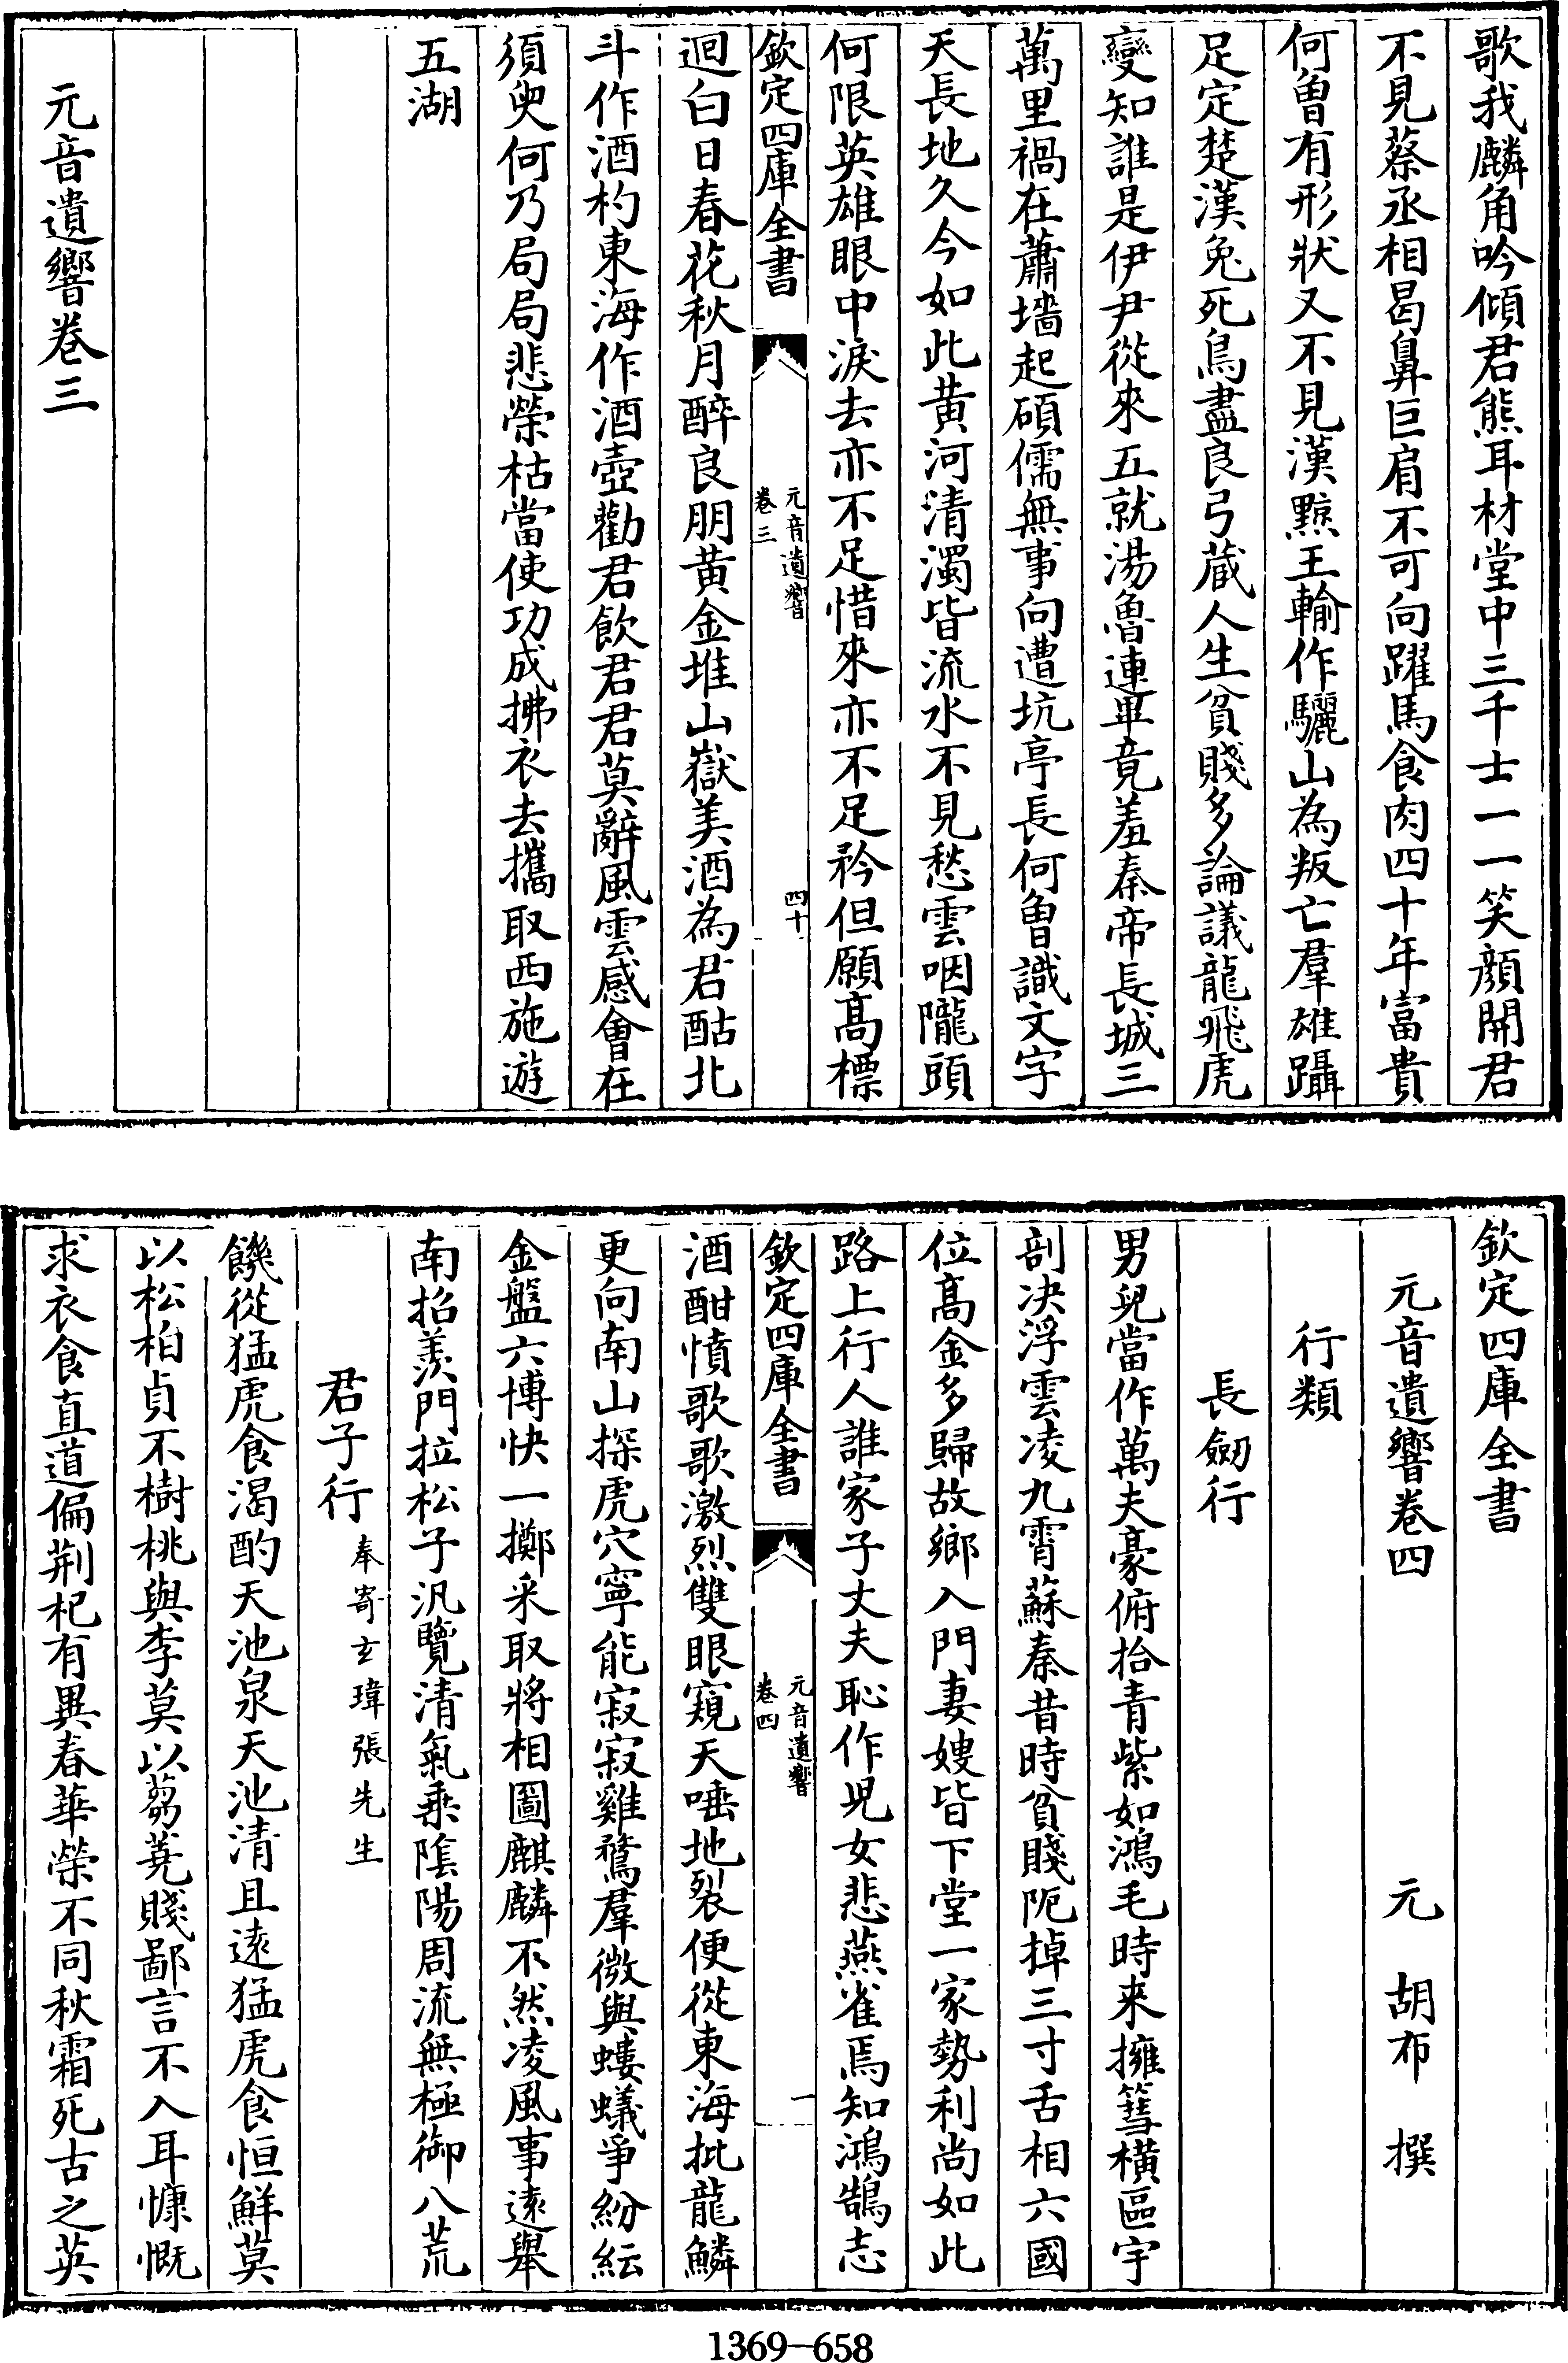 歌我麟角吟傾君熊耳材堂中三千士一一笑顔開君
不見蔡丞相曷鼻巨肩不可向躍馬食肉四十年富貴
何曽有形狀又不見漢黥王輸作驪山為叛亡羣雄躡
足定楚漢兔死鳥盡良弓藏人生貧賤多論議龍飛虎
變知誰是伊尹從來五就湯魯連畢竟羞秦帝長城三
萬里禍在蕭墻起碩儒無事向遭坑亭長何曽識文字
天長地久今如此黄河清濁皆流水不見愁雲咽隴頭
何限英雄眼中淚去亦不足惜來亦不足矜但願髙標
欽定四庫全書
元音遺響
卷三
四十
迴白日春花秋月醉良朋黄金堆山嶽美酒為君酤北
斗作酒杓東海作酒壺勸君飲君君莫辭風雲感會在
須臾何乃局局悲榮枯當使功成拂衣去攜取西施遊
五湖
元音遺響卷三
欽定四庫全書
元音遺響卷四 元 胡布 撰
行類
長劒行
男兒當作萬夫豪俯拾青紫如鴻毛時来擁篲横區宇
剖决浮雲凌九霄蘇秦昔時貧賤阨掉三寸舌相六國
位髙金多歸故鄉入門妻嫂皆下堂一家勢利尚如此
路上行人誰家子丈夫恥作児女悲燕雀焉知鴻鵠志
欽定四庫全書
元音遺響
卷四
一
酒酣憤歌歌激烈雙眼窺天唾地裂便從東海批龍鱗
更向南山探虎穴寧能寂寂雞鶩羣微與螻蟻爭紛紜
金盤六博快一擲采取將相圖麒麟不然凌風事逺舉
南招羨門拉松子汎覽清氣乗陰陽周流無極御八荒
君子行奉寄玄瑋張先生
饑從猛虎食渴酌天池泉天池清且逺猛虎食恒鮮莫
以松柏貞不樹桃與李莫以芻蕘賤鄙言不入耳慷慨
求衣食直道偏荆杞有異春華榮不同秋霜死古之英
1369—658